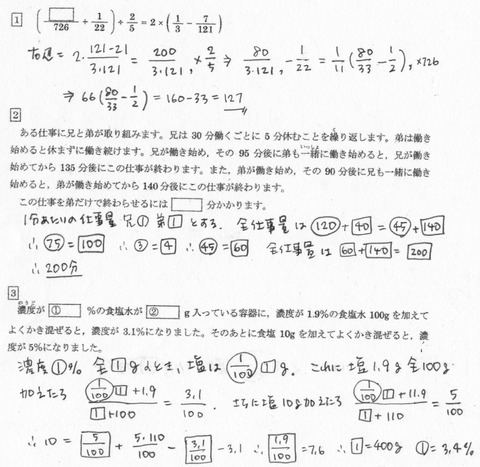 1 (□/726 + 1/22) ÷ 2/5 = 2 × (1/3 − 7/121)
右辺 = 2・(121−21)/(3・121) = 200/(3・121), ×2/5 ⇒ 80/(3・121), −1/22 = 1/11(80/33 − 1/2), ×726
⇒ 66(80/33 − 1/2) = 160−33 = 127
2
ある仕事に兄と弟が取り組みます。兄は 30 分働くごとに 5 分休むことを繰り返します。弟は働き
始めると休まずに働き続けます。兄が働き始め,その 95 分後に弟も一緒に働き始めると,兄が働き
始めてから 135 分後にこの仕事が終わります。また,弟が働き始め,その 90 分後に兄も一緒に働き
始めると,弟が働き始めてから 140 分後にこの仕事が終わります。
この仕事を弟だけで終わらせるには□分かかります。
1分あたりの仕事量 兄① 弟[1] とする. 全仕事量は (120)+[40] = (45)+[140]
∴ (75) = [100] ∴ ③ = [4] ∴ (45) = [60] 全仕事量は [60]+[140] = [200]
∴ 200分
3
濃度が ① %の食塩水が ② g 入っている容器に,濃度が 1.9%の食塩水 100g を加えて
よくかき混ぜると,濃度が 3.1%になりました。そのあとに食塩 10g を加えてよくかき混ぜると,濃
度が 5%になりました。
濃度①% 全[1]gのとき, 塩は(1/100)[1]g. これに塩1.9g 全100g
加えたら ((1/100)[1]+1.9)/([1]+100) = 3.1/100. さらに塩10g加えたら ((1/100)[1]+11.9)/([1]+110) = 5/100
∴ 10 = [5/100] + 5・110/100 − [3.1/100] − 3.1 ∴ [1.9/100] = 7.6 ∴ [1]=400g ①=3.4%